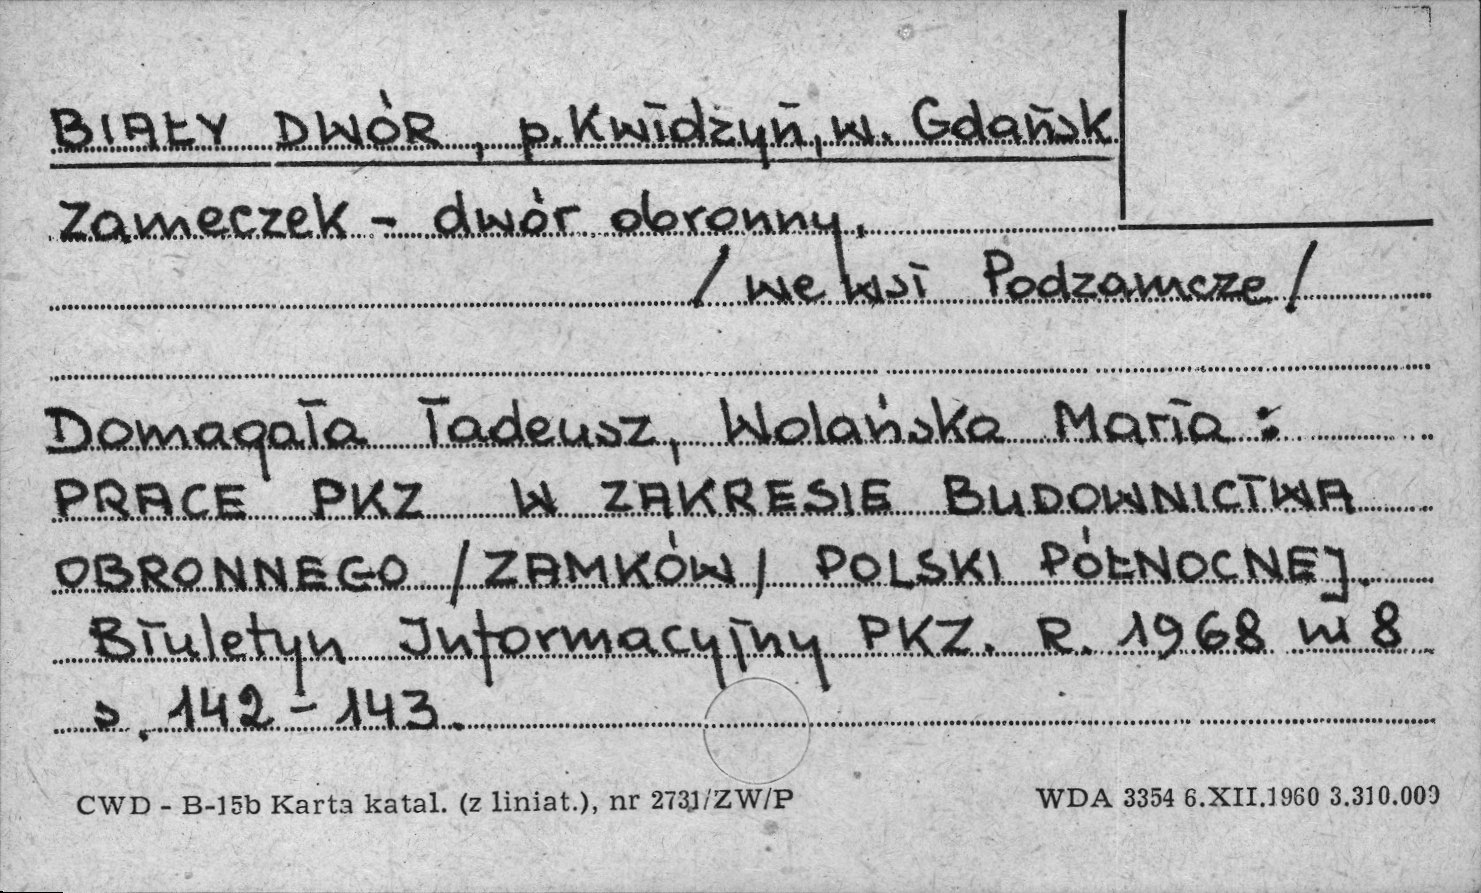 BIAŁY DWÓR, p. Kwidzyń, w. Gdańsk
Zameczek - dwór obronny.
/ we wsi Podzamcze /
Domagała Tadeusz, Wolańska Maria :
PRACE PKZ W ZAKRESIE BUDOWNICTWA
OBRONNEGO /ZAMKÓW/ POLSKI PÓŁNOCNEJ.
Biuletyn Informacyjny PKZ. R. 1968 nr 8
s. 142-143.
CWD - B-15b Karta katal. (z liniat.), nr 2731/ZW/P
WDA 3354 6.XII.1960 3.310.000